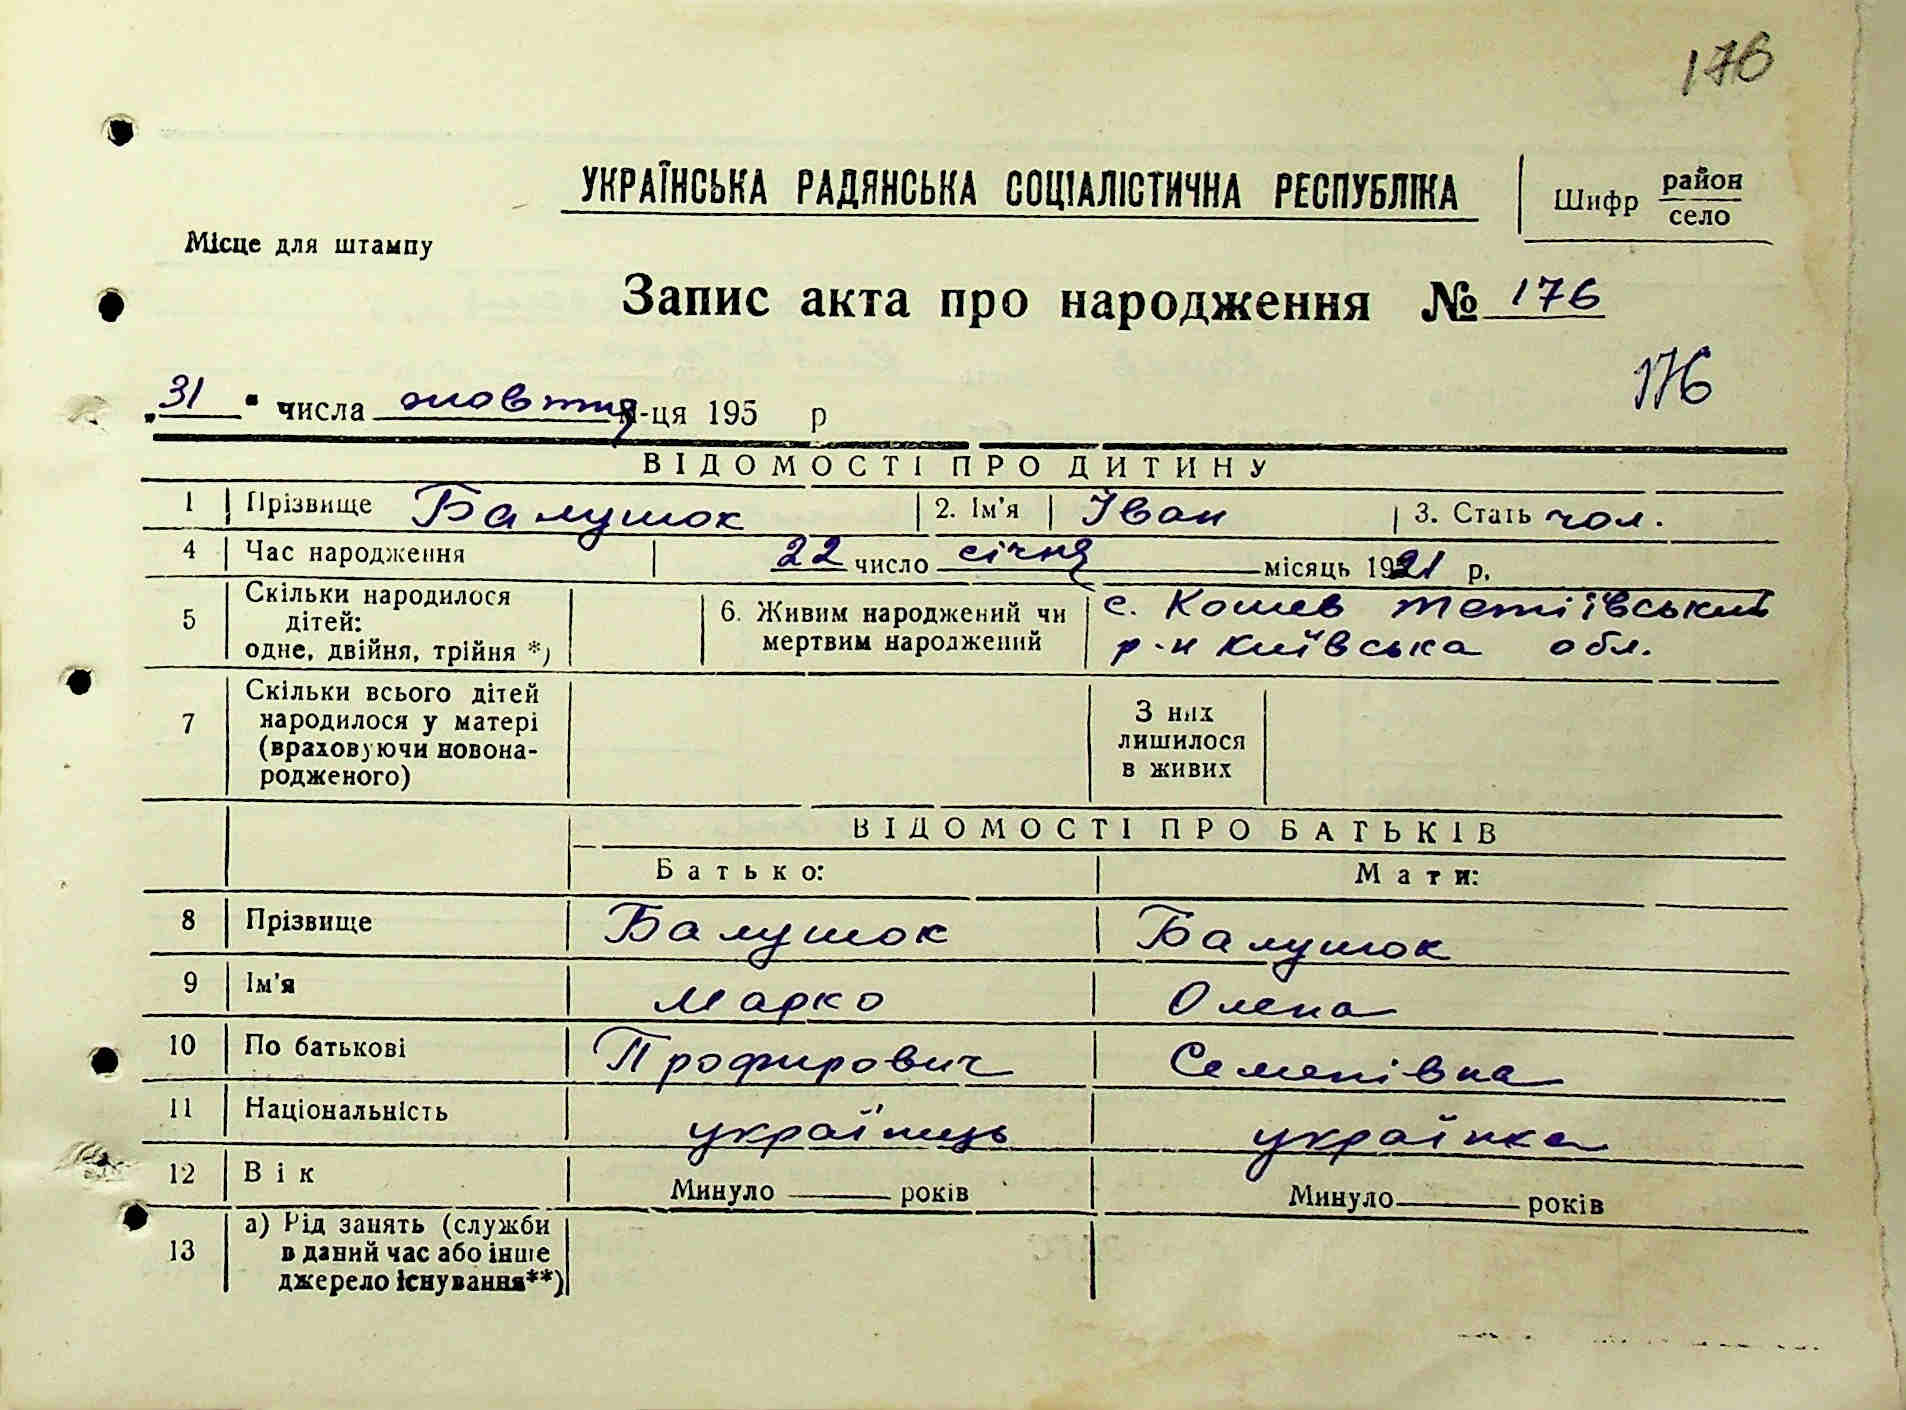 176
УКРАЇНСЬКА РАДЯНСЬКА СОЦІАЛІСТИЧНА РЕСПУБЛІКА
Шифр район
село
Місце для штампу
Запис акта про народження № 176
176
„31" числа жовтня м-ця 195 р
ВІДОМОСТІ ПРО ДИТИНУ
1 Прізвище Балушок 2. Ім'я Іван 3. Стать чол.
4 Час народження 22 число січня місяць 1921 р.
5 Скільки народилося дітей: одне, двійня, трійня *) 6. Живим народжений чи мертвим народжений с. Кошев Тетіївський
р-н Київська обл.
7 Скільки всього дітей народилося у матері (враховуючи новонародженого) З них лишилося в живих
ВІДОМОСТІ ПРО БАТЬКІВ
Батько: Мати:
8 Прізвище Балушок Балушок
9 Ім'я Марко Олена
10 По батькові Профирович Семенівна
11 Національність українець українка
12 Вік Минуло років Минуло років
13 а) Рід занять (служби
в даний час або інше
джерело існування**)